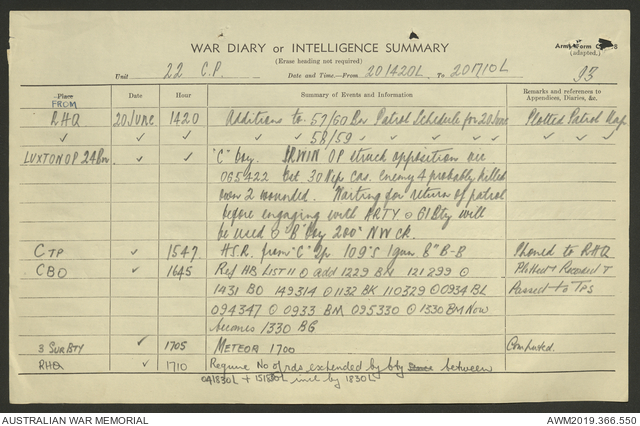 WAR DIARY or INTELLIGENCE SUMMARY
Army Form
(Erase heading not required)
(adapted.)
Unit 22 C.P. Date and Time.—From 201420L To 201710L
93
Place Date Hour Summary of Events and Information Remarks and references to Appendices, Diaries, &c.
FROM
RHQ 20 June 1420 Additions to 57/60 Bn Patrol Schedule for 20 June Plotted Patrol Map
✓ ✓ ✓ ✓ ✓ 58/59 ✓ ✓ ✓ ✓
LUXTON OP 24 Bn ✓ ✓ "C" Coy. IRWIN OP struck opposition
065422 30 Nip cas. Enemy 4 probably killed
own 2 wounded. Waiting for return of patrol
before engaging with ARTY ⊙ 61 Bty will
be used ⊙ "B" Coy 200ˣ NW CK.
C TP ✓ 1547 H.S.R. from "C" Tp 109's 1 gun 8" B-B Phoned to RHQ
CBO ✓ 1645 Ref HB LIST 11 ⊙ add 1229 BM 121299 ⊙ Plotted & Recorded &
1431 BO 149314 ⊙ 1132 BK 110329 ⊙ 0934 BL Passed to TPS
094347 ⊙ 0933 BM 095330 ⊙ 1330 BM Now
becomes 1330 BG
3 SUR BTY ✓ 1705 METEOR 1700 Computed.
RHQ ✓ 1710 Require No of rds expended by bty between
041830L + 151830L incl by 1830L
AUSTRALIAN WAR MEMORIAL AWM2019.366.550